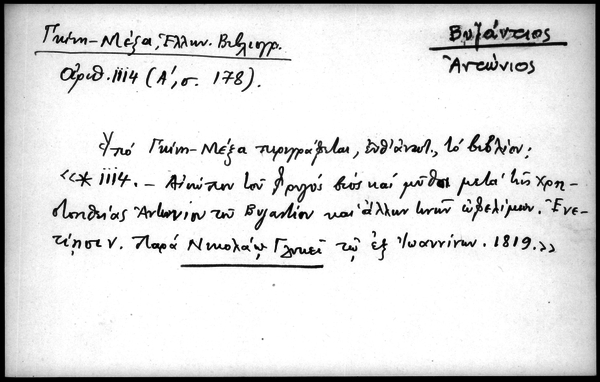 Γκίνη-Μέξα, Ἑλλην. Βιβλιογρ.
ἀριθ. 1114 (Α΄, σ. 178).
Βυζάντιος
Ἀντώνιος
Ὑπό Γκίνη-Μέξα περιγράφεται, ἐνθ' ἀνωτ., τό βιβλίον:
«* 1114. – Αἰσώπου τοῦ Φρυγός βίος καί μῦθοι μετά τῆς Χρη-
στοηθείας Ἀντωνίου τοῦ Βυζαντίου καί ἄλλων τινῶν ὠφελίμων. Ἐνε-
τίησιν. Παρά Νικολάῳ Γλυκεῖ τῷ ἐξ Ἰωαννίνων. 1819.»